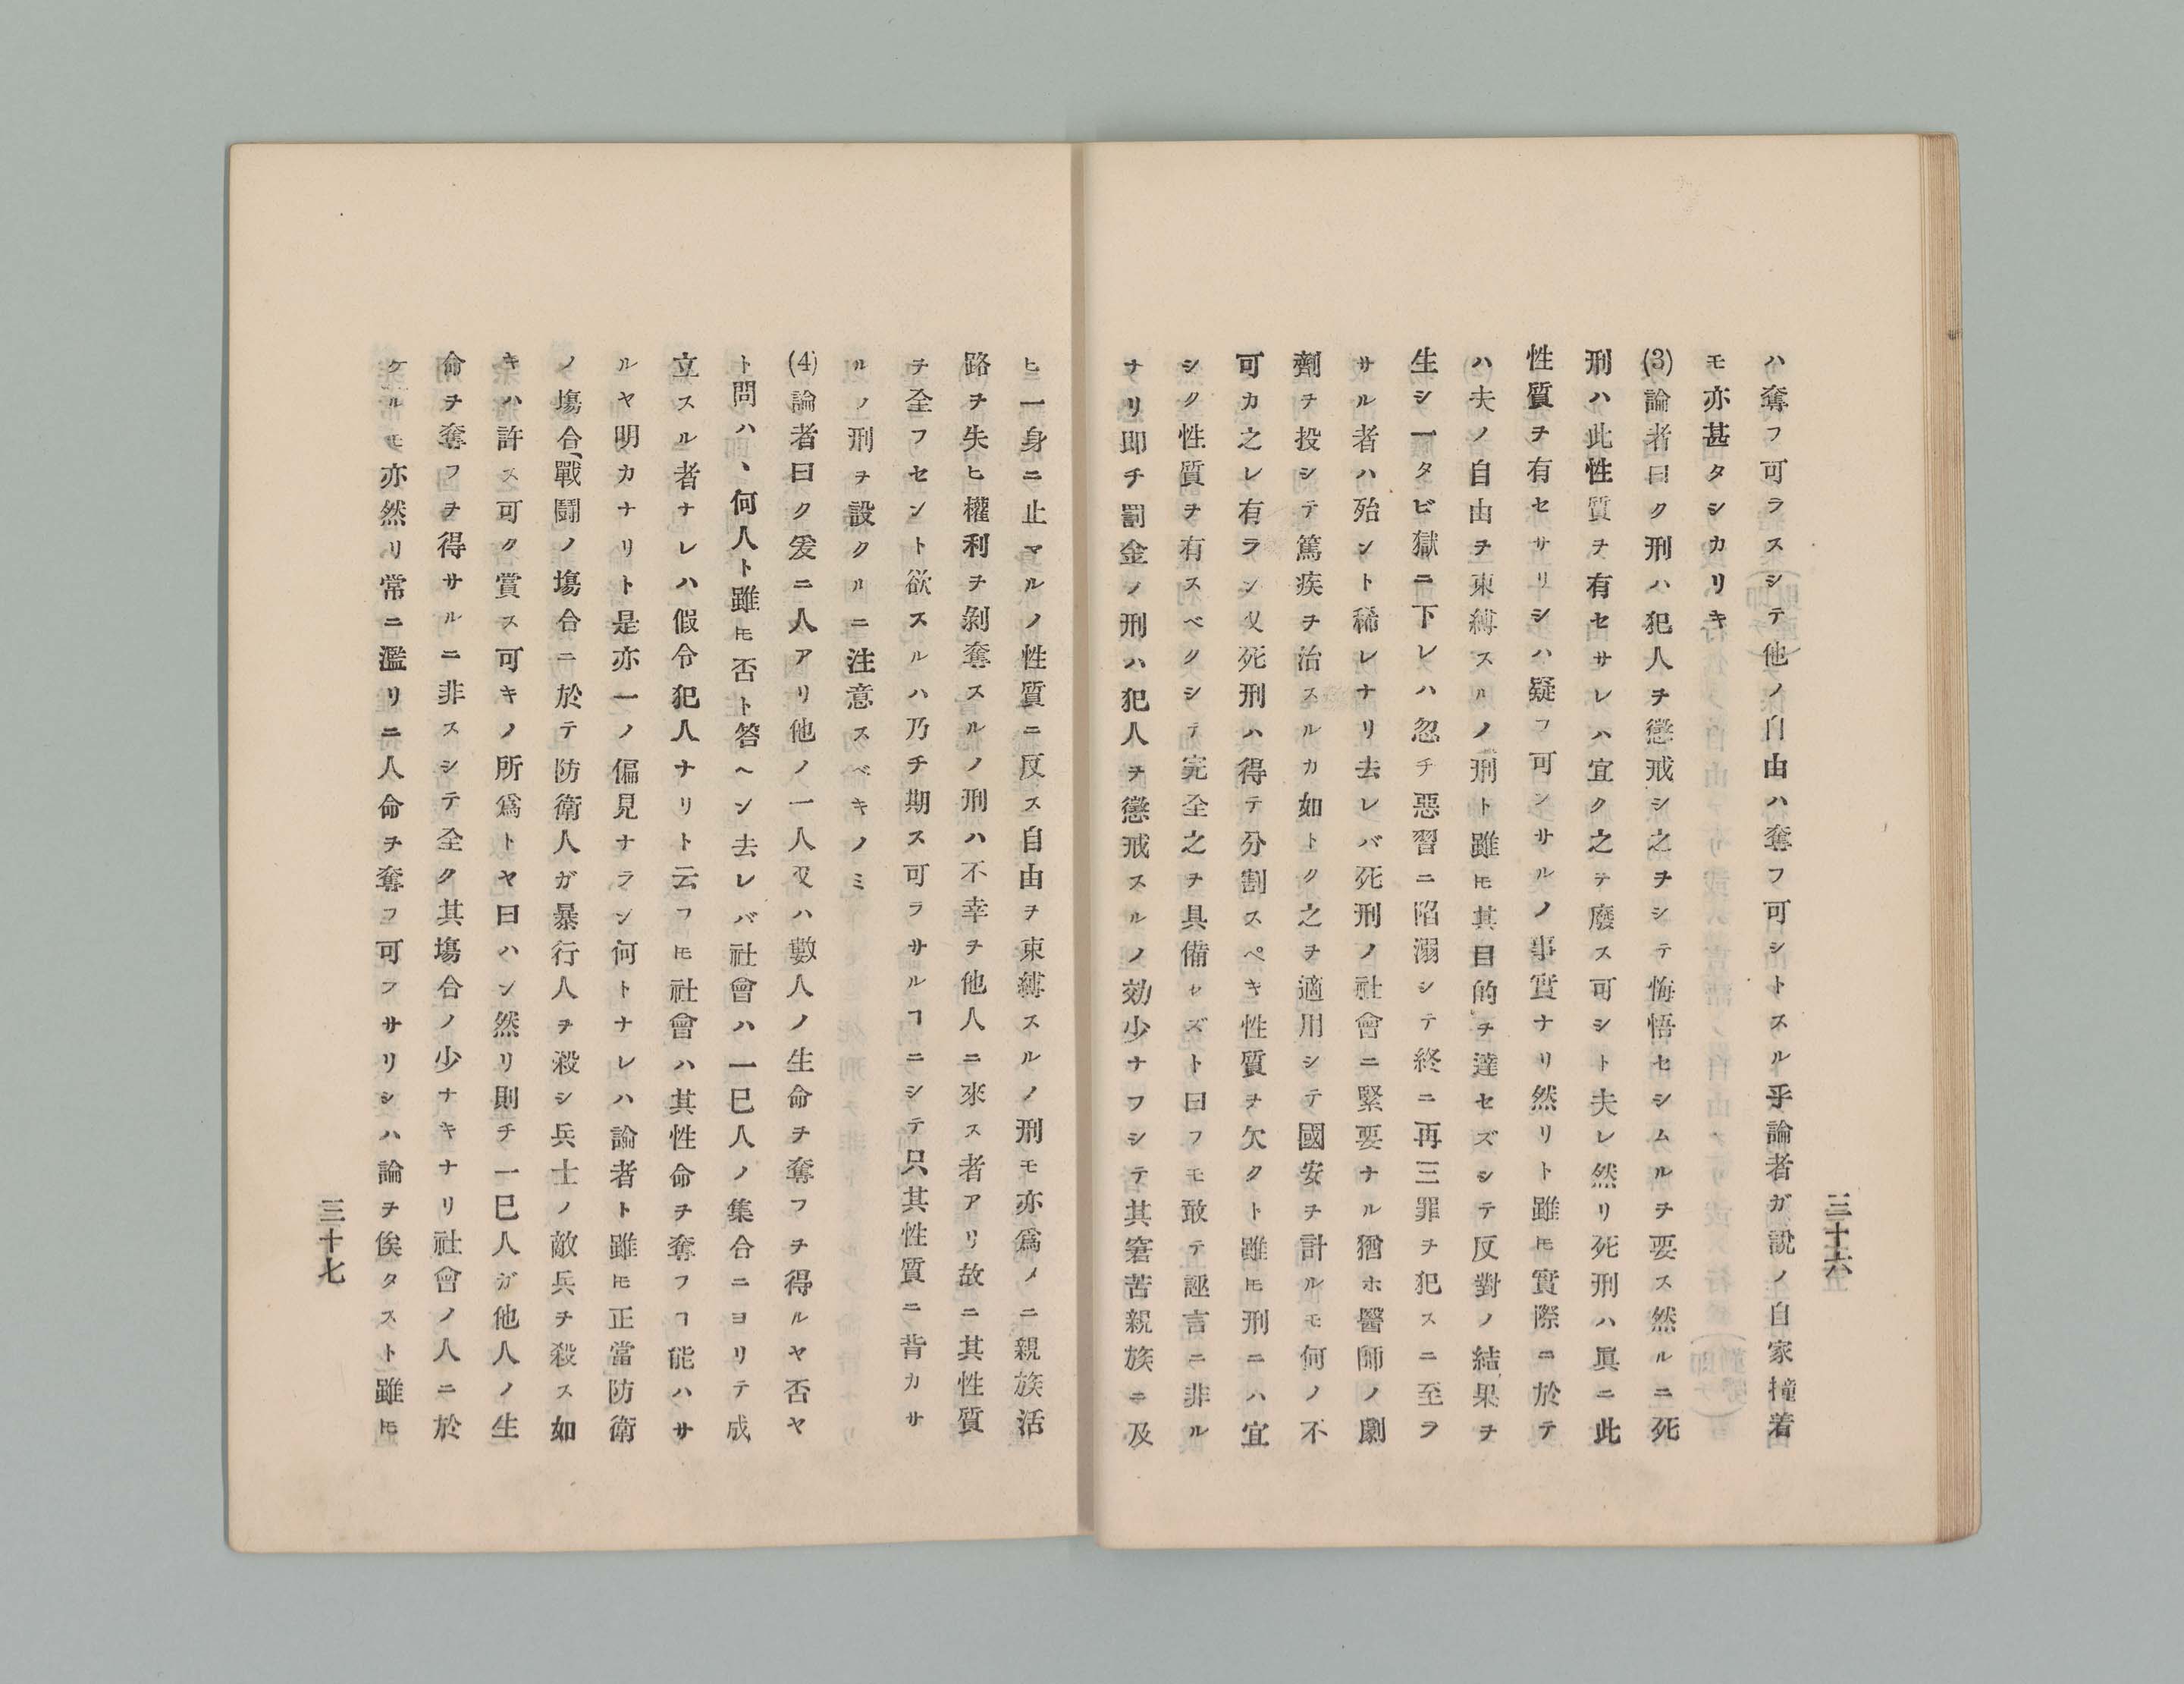 三十六
ハ奪フ可ラスシテ他ノ自由ハ奪フ可シトスル乎論者ガ説ノ自家撞着
モ亦甚タシカリキ
(3)論者曰ク刑ハ犯人ヲ懲戒シ之ヲシテ悔悟セシムルヲ要ス然ルニ死
刑ハ此性質ヲ有セサレハ宜ク之テ廢ス可シト夫レ然リ死刑ハ眞ニ此
性質ヲ有セサリシハ疑フ可ンサルノ事實ナリ然リト雖𪜈實際ニ於テ
ハ夫ノ自由ヲ束縛スルノ刑ト雖𪜈其目的ヲ達セズシテ反對ノ結果ヲ
生シ一タビ獄ニ下レハ忽チ惡習ニ陷溺シテ終ニ再三罪ヲ犯スニ至ラ
サル者ハ殆ント稀レナリ去レバ死刑ノ社會ニ緊要ナル猶ホ醫師ノ劇
劑ヲ投シテ篤疾ヲ治スルカ如トク之ヲ適用シテ國安ヲ計ルモ何ノ不
可カ之レ有ラン又死刑ハ得テ分割スペキ性質ヲ欠クト雖𪜈刑ニハ宜
シク性質ヲ有スベクシテ完全之ヲ具備セズト曰フモ敢テ誣言ニ非ル
ナリ即チ罰金ノ刑ハ犯人ヲ懲戒スルノ効少ナフシテ其窘苦親族ニ及
ヒ一身ニ止マルノ性質ニ反ス自由ヲ束縛スルノ刑モ亦爲メニ親族活
路ヲ失ヒ權利ヲ剝奪スルノ刑ハ不幸ヲ他人ニ來ス者アリ故ニ其性質
ヲ全フセント欲スルハ乃チ期ス可ラサルヿニシテ只其性質ニ背カサ
ルノ刑ヲ設クルニ注意スベキノミ
(4)論者曰ク爰ニ人アリ他ノ一人又ハ數人ノ生命ヲ奪フヲ得ルヤ否ヤ
ト問ハヽ何人ト雖𪜈否ト答ヘン去レバ社會ハ一巳人ノ集合ニヨリテ成
立スル者ナレハ假令犯人ナリト云フ𪜈社會ハ其性命ヲ奪フヿ能ハサ
ルヤ明カナリト是亦一ノ偏見ナラン何トナレハ論者ト雖𪜈正當防衛
ノ塲合戰鬪ノ塲合ニ於テ防衛人ガ暴行人ヲ殺シ兵士ノ敵兵ヲ殺ス如
キハ許ス可ク賞ス可キノ所爲トヤ曰ハン然リ則チ一巳人ガ他人ノ生
命ヲ奪フヲ得サルニ非スシテ全ク其塲合ノ少ナキナリ社會ノ人ニ於
ケルモ亦然リ常ニ濫リニ人命ヲ奪フ可フサリシハ論ヲ俟タスト雖𪜈
三十七